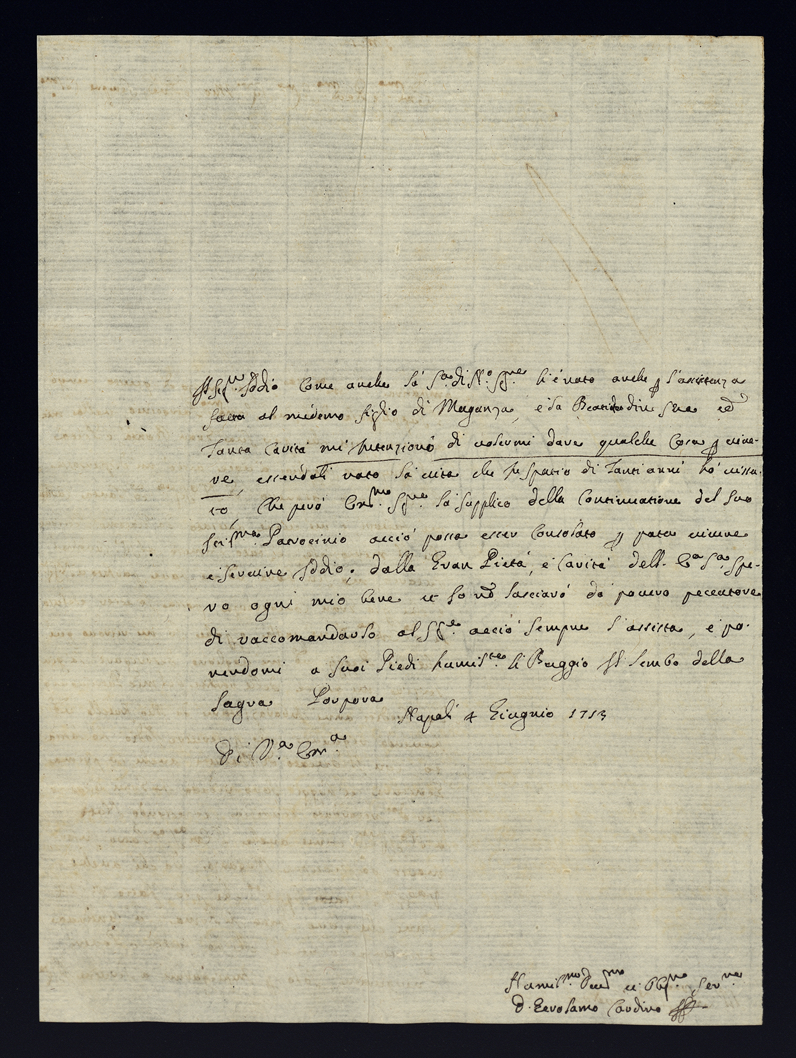 Iddio Come anche la S.ta di N.ro Sig.re li è noto anche p l'assistenza
fatta al medemo figlio di Maganza, e la Beatitudine Sua ed
Tanta Carità mi di volermi dare qualche Cosa p vive-
re, essendoli noto la vita che in spatio di Tanti anni hò vissu-
to, Che però Em.mo Sig.re la supplico della Continuatione del suo
Patrocinio acciò possa esser Consolato p poter vivere
e servire Iddio; dalla Gran Pietà, e Carità dell' E.a S.a spe-
ro ogni mio bene et Io nõ lascierò da povero peccatore
di raccomandarlo al Sig.re acciò sempre l'assista, e po-
nendomi a suoi Piedi humilm.te li Baggio il lembo della
Sagra Porpora
Napoli 4 Giugnio 1713
Di V.a Em.a
Humil.mo Dev.mo et Obl.mo Ser.re
D. Gerolamo Cardino